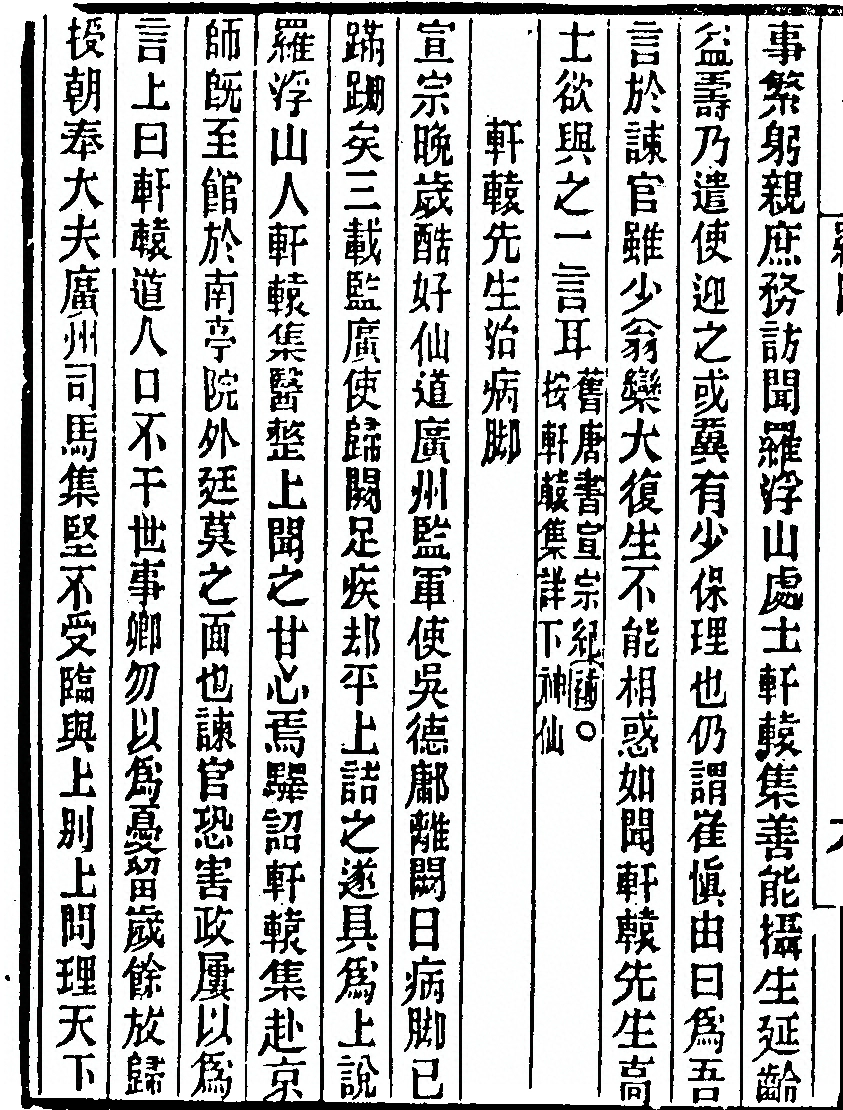 事繁躬親庶務訪聞羅浮山處士軒轅集善能攝生延齡
益壽乃遣使迎之或冀有少保理也仍謂崔愼由曰爲吾
言於諫官雖少翁欒大復生不能相惑如聞軒轅先生高
士欲與之一言耳舊唐書宣宗紀補〇
按軒轅集詳下神仙
軒轅先生治病脚
宣宗晚歲酷好仙道廣州監軍使吳德鄘離闕日病脚已
蹣跚矣三載監廣使歸闕足疾却平上詰之遂具爲上說
羅浮山人軒轅集醫整上聞之甘心焉驛詔軒轅集赴京
師旣至館於南亭院外廷莫之面也諫官恐害政屢以爲
言上曰軒轅道人口不干世事卿勿以爲憂留歲餘放歸
授朝奉大夫廣州司馬集堅不受臨與上別上問理天下